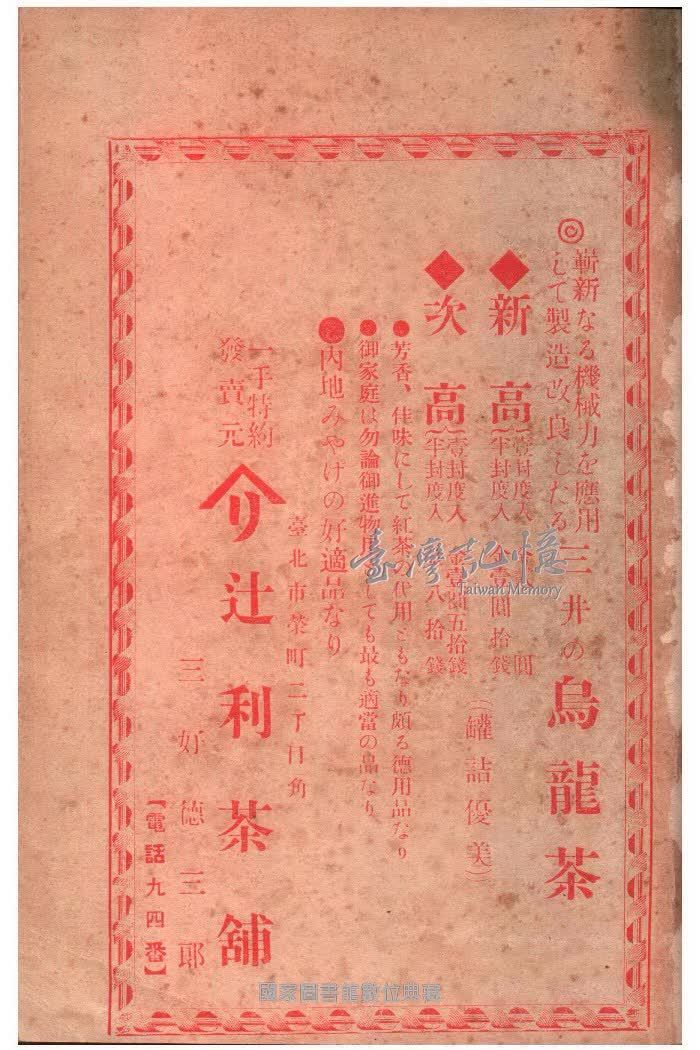 ◎嶄新なる機械力を應用
して製造改良したる三井の烏龍茶
◆新高
壹封度入 圓
半封度入 金壹圓拾錢
◆次高
壹封度入 金壹圓五拾錢
半封度入 八拾錢
(罐詰優美)
●芳香、佳味にして紅茶の代用ともなり頗る徳用品なり
●御家庭は勿論御進物用としても最も適當の品なり
●内地みやげの好適品なり
臺北市榮町二丁目角
一手特約
發賣元
リ辻利茶舖
三好徳三郎
【電話九四番】
臺灣記憶
Taiwan Memory
國家圖書館數位典藏